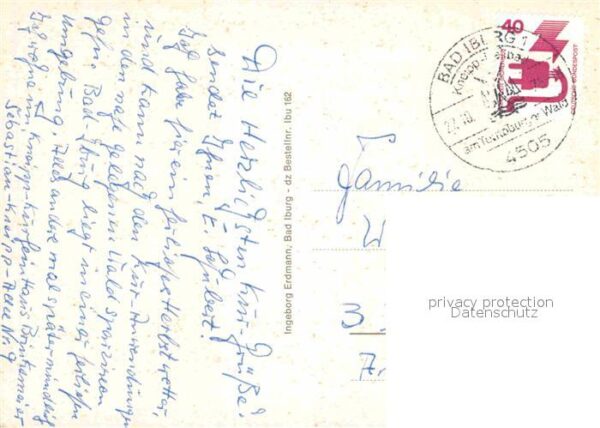 Die Herzlichsten Kur-Grüße!
sendet Ihnen, E. Schubert.
Ich habe hier ein herbstwetter,
und kann nach den Kur-Anwendungen
in den nahe gelegenen Wald spazieren
gehn. Bad-Iburg liegt in einer
Umgebung. Alles andere mal später mündlich
Ich wohne im Kneipp-Kurheim Haus
Sebastian-Kneipp-Allee Nr. 9
Ingeborg Erdmann, Bad Iburg - dz Bestellnr. Ibu 162
40
DEUTSCHE BUNDESPOST
BAD IBURG 1
Kneipp-Heilbad
am Teutoburger Wald
4505
Familie
W
3
privacy protection
Datenschutz